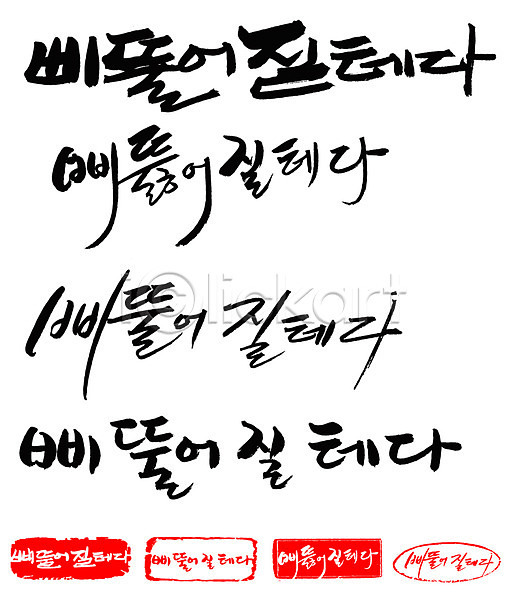 삐뚤어 질테다
삐뚫어 질테다
삐뚤어 질테다
삐뚤어 질 테다
삐뚤어 질테다 삐뚤어 질 테다 삐뚫어 질테다 삐뚤어 질테다